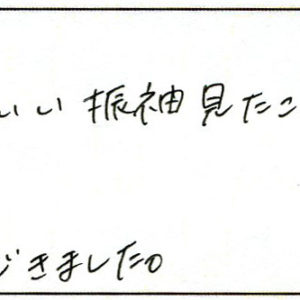 いい振袖見たこ
じきました。